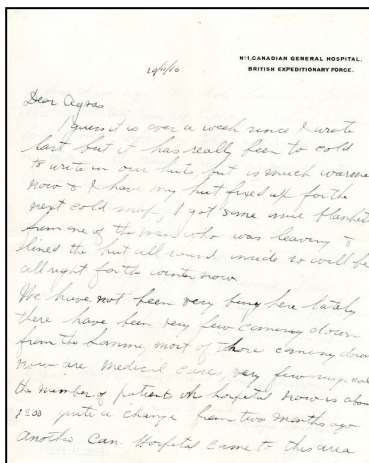 No 1, CANADIAN GENERAL HOSPITAL,
BRITISH EXPEDITIONARY FORCE.
Dear Agnes
I guess it is over a week since I wrote
last but it has really been to cold
to write in our huts but is much warmer
now & I have my hut fixed up for the
next cold snap, I got some nice blankets
from one of the men who was leaving &
lined the hut all round inside so will be
all right for the winter now
We have not been very busy here lately
there have been very few coming down
from the Somme most of those coming down
now are medical cases, very few surgical
the number of patients in hospital now is about
quite a change from two months ago
another Can Hospital came to this area